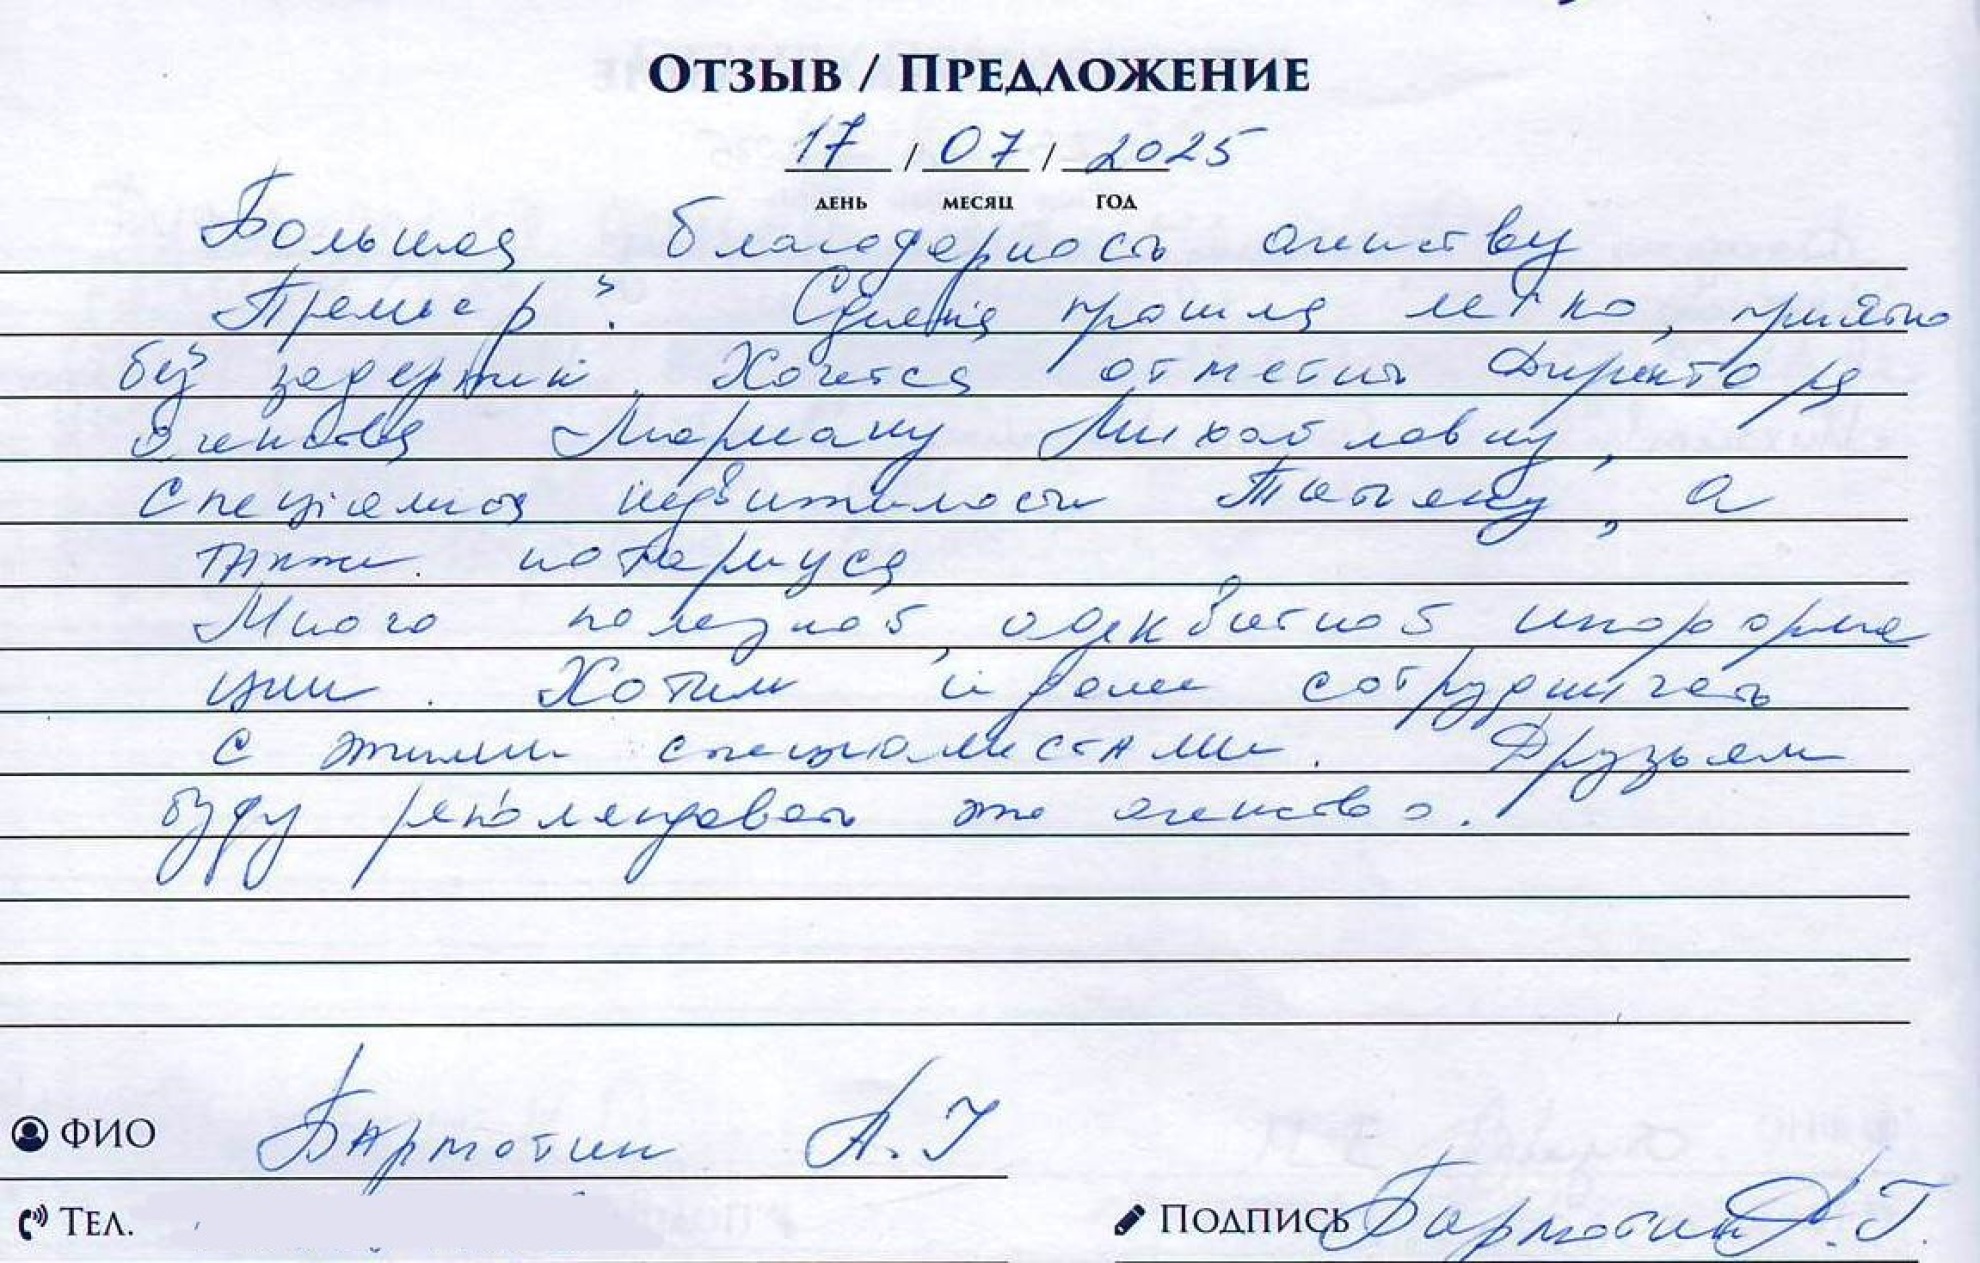 ОТЗЫВ / ПРЕДЛОЖЕНИЕ
17 / 07 / 2025
ДЕНЬ МЕСЯЦ ГОД
Большая благодарность агенству
Премьер". Сделка прошла легко, приятно
без задержек. Хочется отметить Директора
агенства Марианну Михайловну,
специалиста недвижимости Татьяну, а
также нотариуса
Много полезной, адекватной информа
ции. Хотим и далее сотрудничать
с этими специалистами. Друзьям
буду рекомендовать это агенство.
ФИО Бармотин А.Г
ТЕЛ.
ПОДПИСЬ Бармотин А.Г.